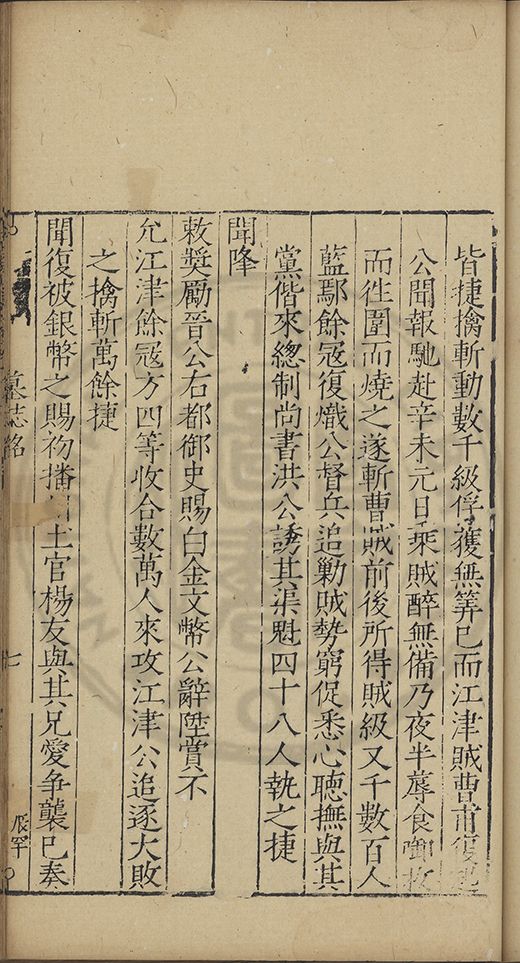 皆捷擒斬動數千級俘獲無筭已而江津賊曹甫復
公聞報馳赴辛未元日乘賊醉無備乃夜半蓐食啣枚
而徃圍而燒之遂斬曹賊前後所得賊級又千數百人
藍鄢餘冦復熾公督兵追勦賊勢窮促悉心聴撫與其
黨偕來緫制尚書洪公誘其渠魁四十八人執之捷
聞降
敕奬勵晉公右都御史賜白金文幣公辭陞賞不
允江津餘冦方四等收合數萬人來攻江津公追逐大敗
之擒斬萬餘捷
聞復被銀幣之賜初播州土官楊友與其兄愛争襲已奏
墓誌銘
七